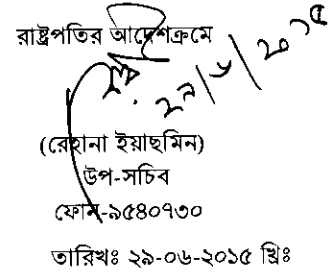 রাষ্ট্রপতির আদেশক্রমে
২৯/৬/২০১৫
(রেহানা ইয়াছমিন)
উপ-সচিব
ফোন-৯৫৪০৭৩০
তারিখঃ ২৯-০৬-২০১৫ খ্রিঃ